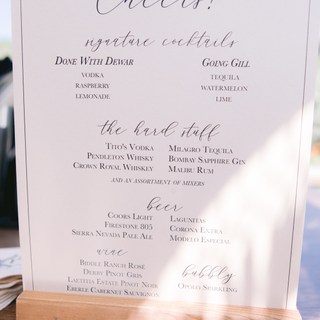 Cheers!
signature cocktails
Done With Dewar
vodka
raspberry
lemonade
Going Gill
tequila
watermelon
lime
the hard stuff
Tito's Vodka
Pendleton Whisky
Crown Royal Whiskey
Milagro Tequila
Bombay Sapphire Gin
Malibu Rum
and an assortment of mixers
beer
Coors Light
Firestone 805
Sierra Nevada Pale Ale
Lagunitas
Corona Extra
Modelo Especial
wine
Biddle Ranch Rosé
Derby Pinot Gris
Laetitia Estate Pinot Noir
Eberle Cabernet Sauvignon
bubbly
Opolo Sparkling